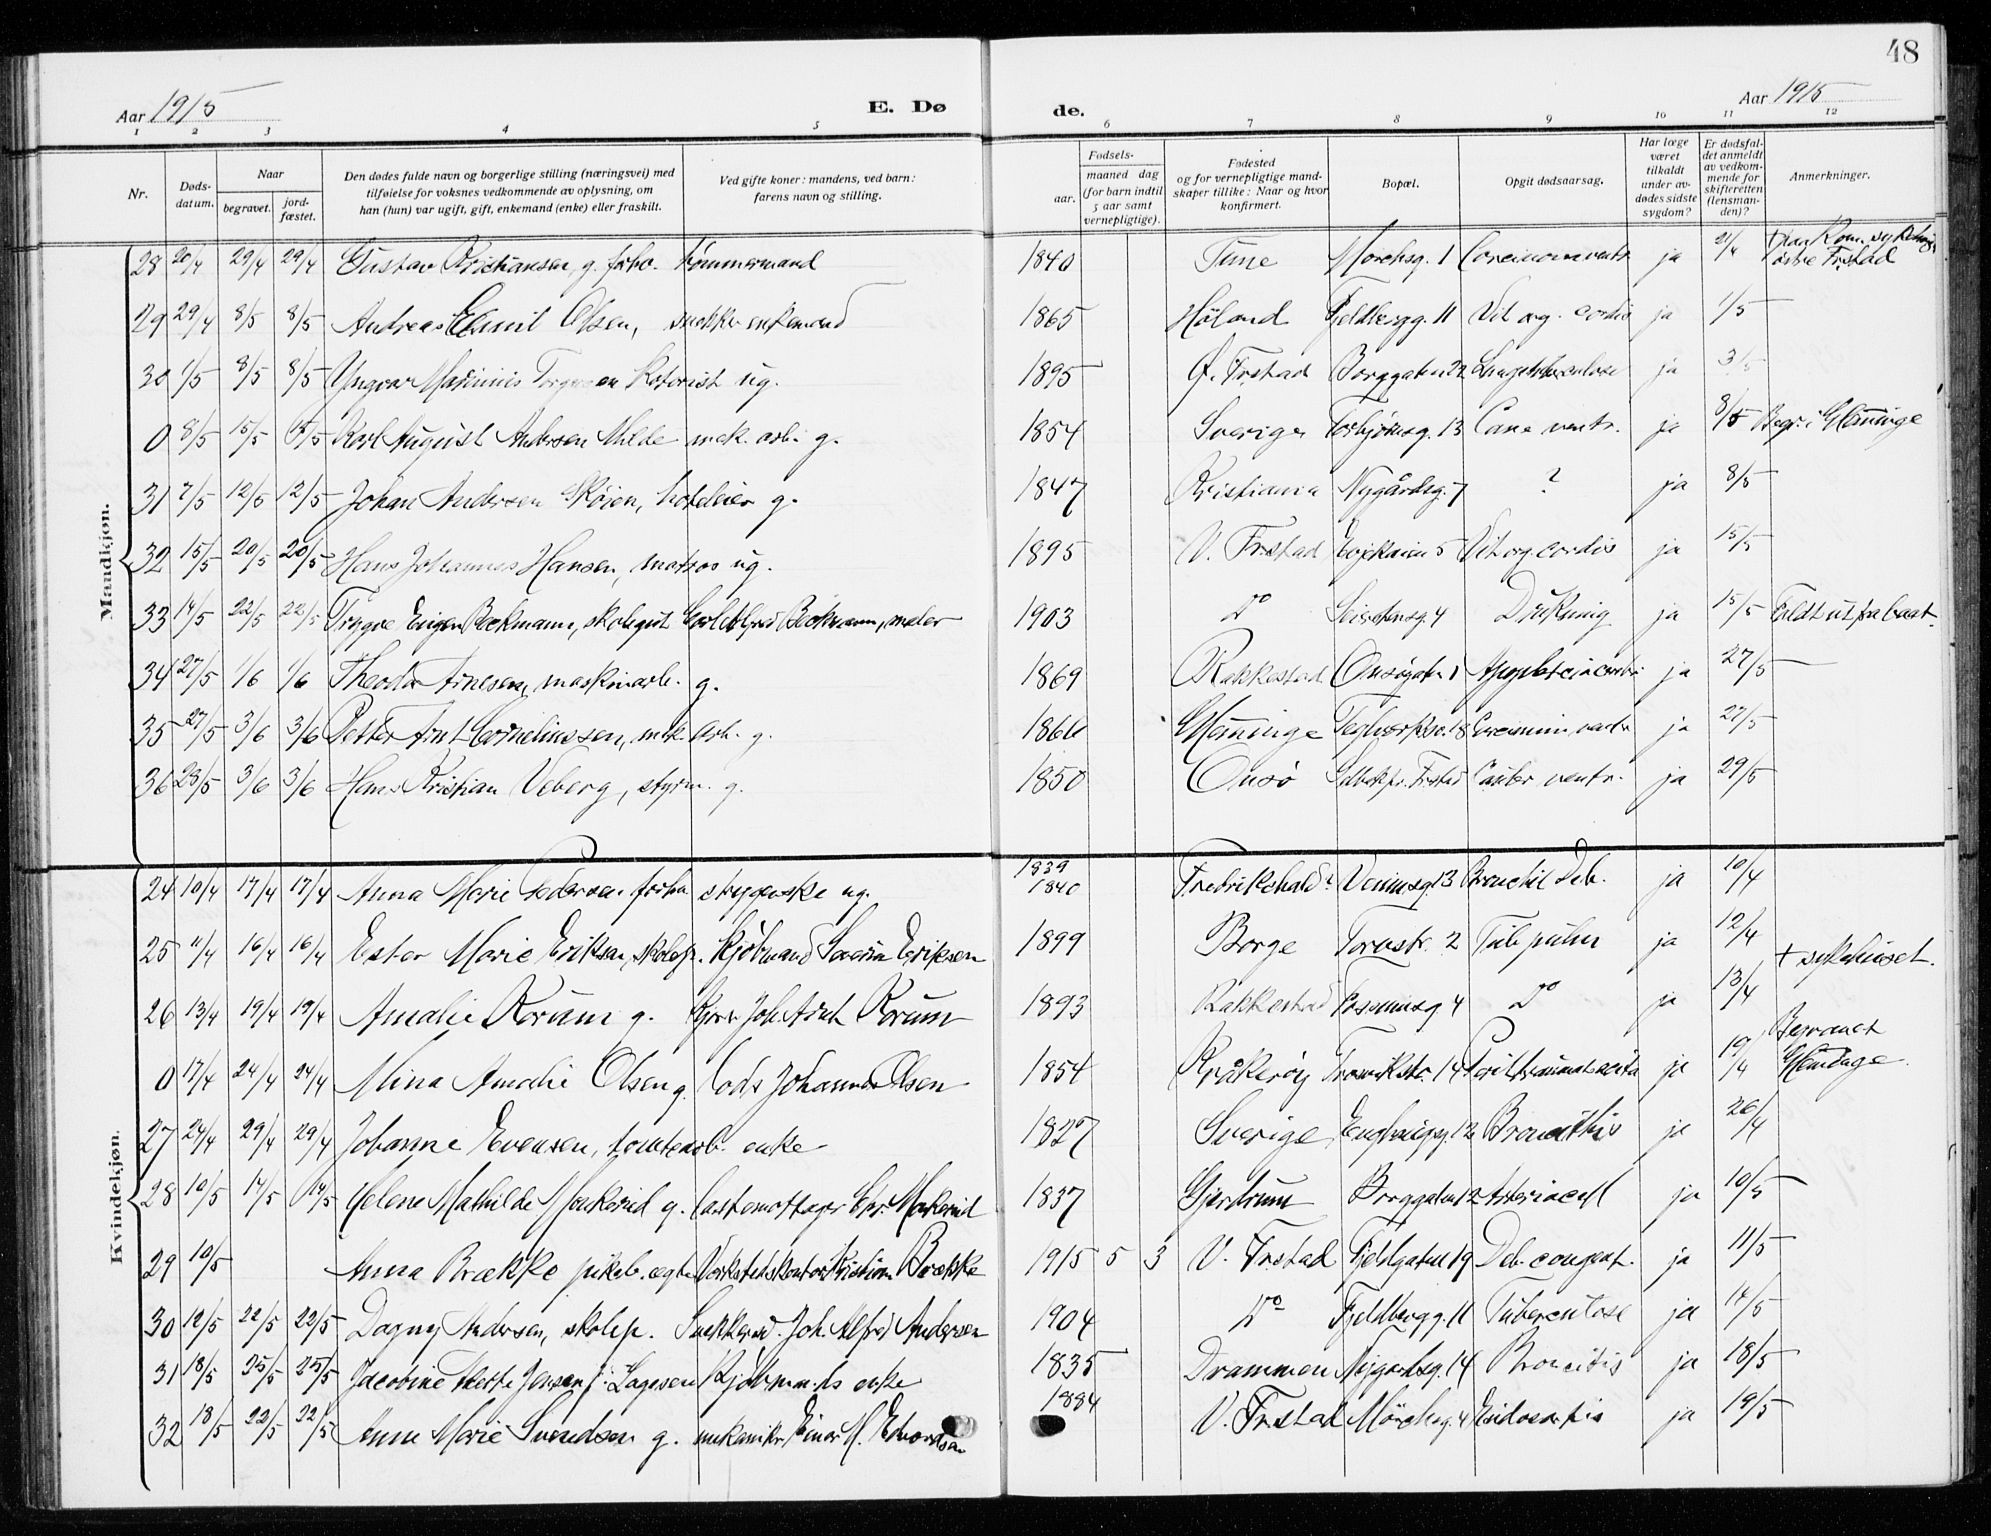 48
Aar 1915
E. Dø
de.
Aar 1915
1 2 3 4 5 6 7 8 9 10 11 12
Nr.
Døds-datum.
Naar
begravet.
jord-fæstet.
Den dødes fulde navn og borgerlige stilling (næringsvei) med tilføielse for voksnes vedkommende av oplysning, om han (hun) var ugift, gift, enkemand (enke) eller fraskilt.
Ved gifte koner: mandens, ved barn: farens navn og stilling.
Fødsels-
aar.
maaned dag (for barn indtil 5 aar samt vernepligtige).
Fødested og for vernepligtige mandskaper tillike: Naar og hvor konfirmert.
Bopæl.
Opgit dødsaarsag.
Har læge været tilkaldt under avdødes sidste sygdom?
Er dødsfaldet anmeldt av vedkommende for skifteretten (lensmanden)?
Anmerkninger.
Mandkjøn.
28 20/4 29/4 29/4 Gustav Kristiansen, g. forhv. tømmermand 1840 Tune Mørchsg. 1 ja 21/4
29 29/4 8/5 8/5 Andreas Emil Olsen, snekker enkemand 1865 Høland Fjeldbergg. 11 Vit. org. cordis ja 1/5
30 1/5 8/5 8/5 Yngvar ug. 1895 Frstad Borggaten 22 ja 3/5
0 8/5 15/5 15/5 Karl August Andersen Milde mek. arb. g. 1854 Sverige Torbjørnsg. 13 Canc. ventr. ja 8/5 Begr. i Glemminge
31 7/5 12/5 12/5 Johan Andersen Skøien, hoteleier g. 1847 Kristiania Nygårdsg. 7 ? ja 8/5
32 15/5 20/5 20/5 Hans Johannes Hansen, matros ug. 1895 V. Frstad 5 Vit. org. cordis ja 15/5
33 14/5 22/5 22/5 Trygve Eugen Beckmann, skolegut Beckmann, maler 1903 Do 4 Drukning ja 15/5 Faldt ut fra baat.
34 27/5 1/6 1/6 Theodor Arnesen, maskinarb. g. 1869 Rakkestad Onsøgaten 1 ja 27/5
35 27/5 3/6 3/6 Petter Arnt Corneliussen, mek. arb. g. 1866 Glemminge Teglverksv. 18 ja 27/5
36 28/5 3/6 3/6 Hans Kristian Veberg, styrm. g. 1850 Onsø Frstad Cancer ventr. ja 29/5
Kvindekjøn.
24 10/4 17/4 17/4 Anna Marie Pedersen forhv. strygerske ug. 1839 1840 Fredrikshald? 13 ja 10/4
25 11/4 16/4 16/4 Ester Marie Eriksen, skolep. Kjøbmand Severin Eriksen 1899 Borge Torvstr. 2 Tub. pulm ja 12/4
+ sykehuset.
26 13/4 19/4 19/4 Amalie Korum g. Joh. Arnt Korum 1893 Rakkestad 4 Do ja 13/4
0 17/4 24/4 24/4 Mina Amalie Olsen g. Lods Johannes Olsen 1854 Kråkerøy 14 ja 19/4 Begravet Glemminge.
27 24/4 29/4 29/4 Johanne Evensen, tomtearb. enke 1827 Sverige 12 Bronchitis ja 26/4
28 10/5 14/5 14/5 Helene Mathilde Mørkerud g. Lastemottager Chr. Mørkerud 1837 Gjerdrum Borggaten 12 ja 10/5
29 10/5 Anna Brække pikeb. egte Verkstedskontorist Kristian Brække 1915 5 3 V. Frstad Fjeldgaten 19 Deb. congenit. ja 11/5
30 12/5 22/5 22/5 Dagny Andersen, skolep. Snekkersv. Joh. Alfred Andersen 1904 Do Fjeldbergg. 11 Tuberculose ja 14/5
31 18/5 25/5 25/5 Jacobine Mette Jensen f. Lagesen Kjøbmands enke 1835 Drammen Nygaardsg. 14 Broncitis ja 18/5
32 18/5 22/5 22/5 Anne Marie Svendsen g. mekaniker Einar M. Edvardsen 1884 V. Frstad Mørchsg. 4 ja 19/5